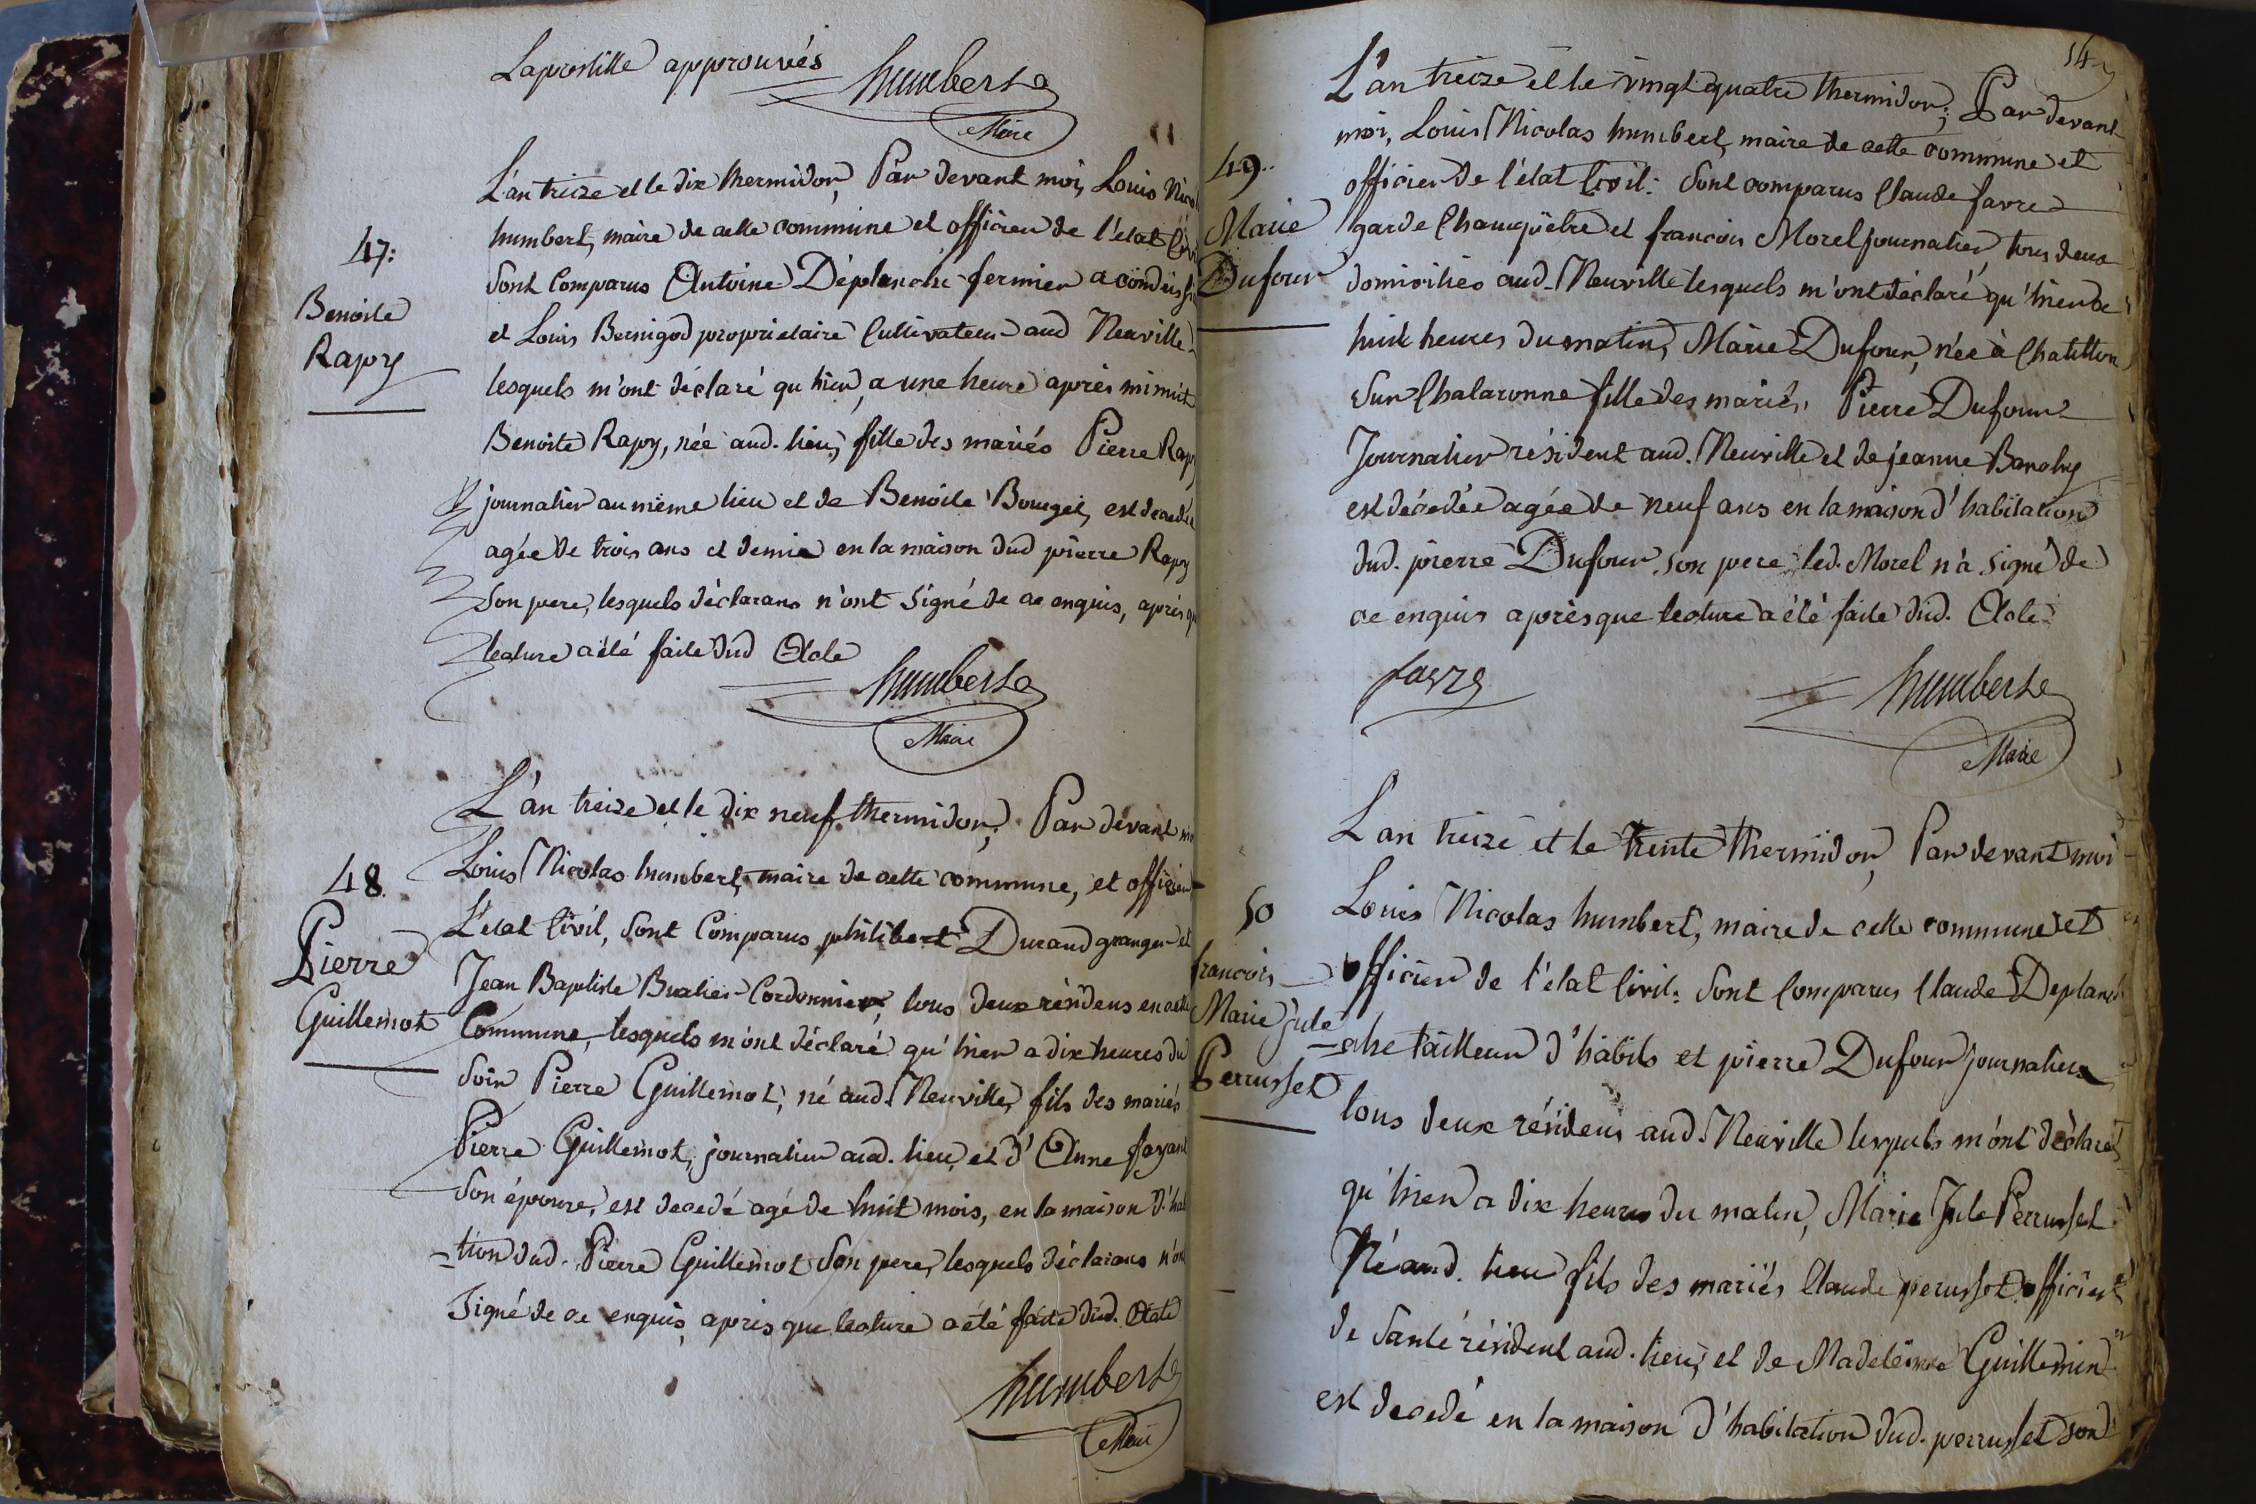 Lapostille approuvés
humbert
Maire
L'an treize et le dix thermidor, Par devant moi, Louis Nicol
humbert, maire de cette commune et officier de l'état Civi
47:
Benoite
Rapy
Sont Comparus Antoine Déplanche fermier a
et Louis Bernigod propriétaire Cultivateur aud Neuville
lesquels m'ont déclaré qu'hier, a une heure après minuit
Benoite Rapy, née aud. lieu, fille des mariés Pierre Rapy
journalier au même lieu et de Benoite Bourget, est decedée
agée de trois ans et demie en la maison dud pierre Rapy
Son pere, lesquels déclarans n'ont Signé de ce enquis, après que
lecture a été faite dud Acte
humbert
Maire
L'an treize et le dix neuf thermidor, Par devant moi
Louis Nicolas humbert, maire de cette commune, et officier
48.
Pierre
Guillemot
L'état Civil, Sont Comparus philibert Durand granger et
Jean Baptiste Cordonnier, tous deux résidens en cette
Commune, lesquels m'ont déclaré qu'hier a dix heures du
Soir Pierre Guillemot, né aud. Neuville, fils des mariés
Pierre Guillemot, journalier aud. lieu, et d'Anne fayant
Son épouse, est decedé agé de huit mois, en la maison d'hab
tion dud. Pierre Guillemot Son pere, lesquels déclarans n'ont
Signé de ce enquis, apris que lecture a été faite dud. Acte
humbert
Maire
54
L'an treize et le vingt quatre thermidor; Par devant
moi, Louis Nicolas humbert, maire de cette commune et
49.
Marie
Dufour
officier de l'état Civil: Sont comparus Claude favre
garde Champêtre et francois Morel journalier tous deux
domiciliés aud. Neuville lesquels m'ont déclaré qu'hier a
huit heures du matin, Marie Dufour, née à Chatillon
Sur Chalaronne fille des mariés, Pierre Dufour
Journalier résident aud. Neuville et de jeanne
est décedée agée de neuf ans en la maison d'habitation
dud. pierre Dufour son pere, led. Morel n'a signé de
ce enquis après que lecture a été faite dud. Acte
favre
humbert
Maire
L'an treize et le trente thermidor, Par devant moi
50
francois
Marie jule
Perrusset
Louis Nicolas humbert, maire de cette commune et
officier de l'état Civil: Sont Comparus Claude Deplan
-che tailleur d'habits et pierre Dufour journalier
tous deux résidens aud. Neuville lesquels m'ont déclaré
qu'hier a dix heures du matin, Marie Jule Perrusset
Né aud. lieu fils des mariés Claude perusset officier
de Santé résident aud. lieu, et de Madeleine Guillemin
est decedé en la maison d'habitation dud. perrusset son